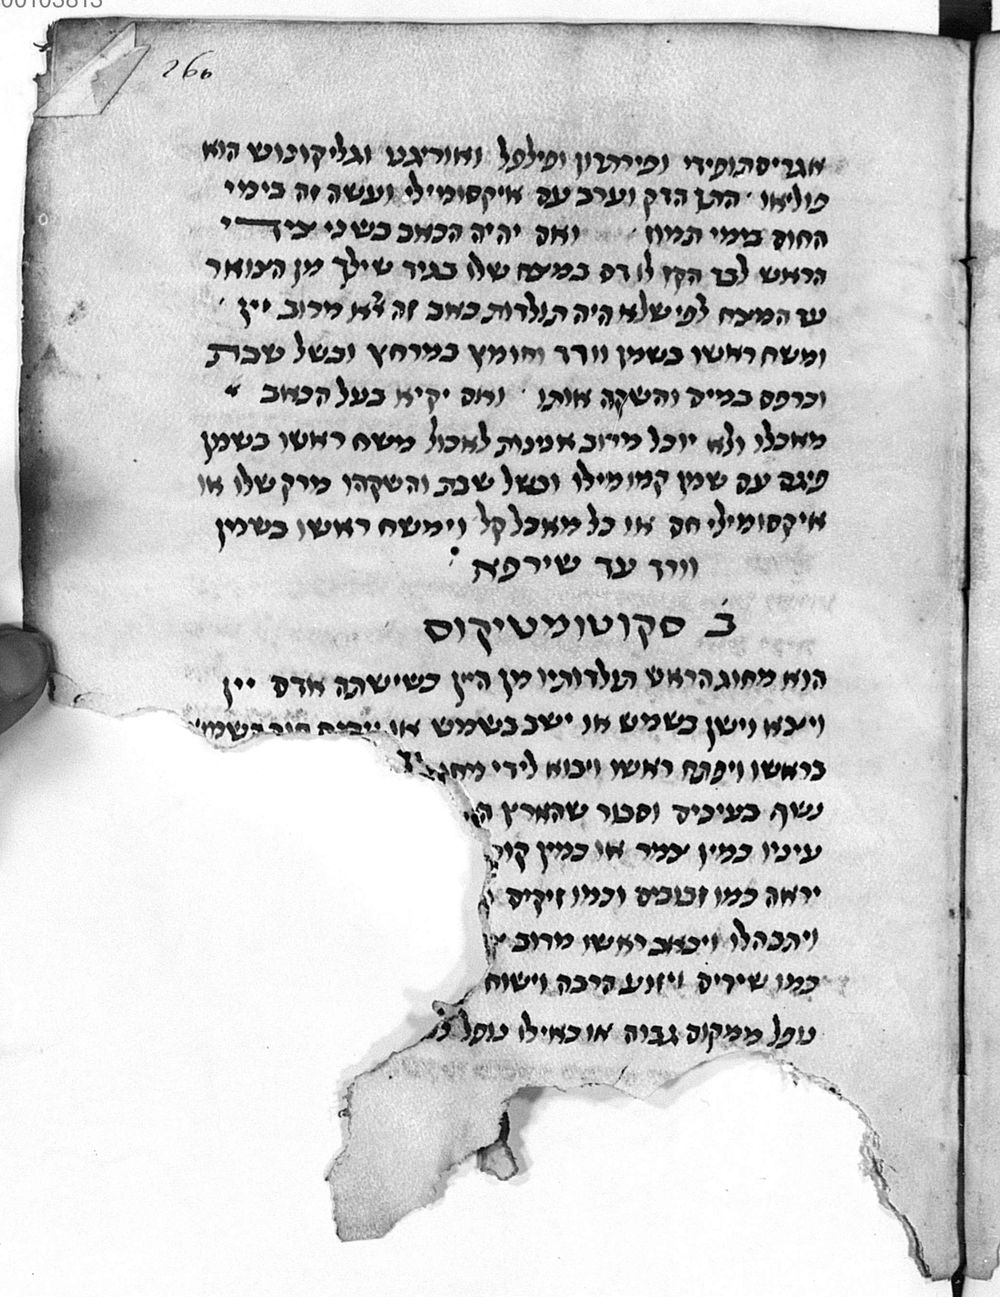 00103813
266
אגריסתופידי ופירתרון ופילפל ואוריגנו וגליקונוש הוא
פוליאו הדגן הדק וערב עם איקסומילי ועשה זה בימי
החום בימי תמוז ואם יהיה הכאב בשני צידי
הראש לבד הקז לו דם במצח שלו בגיד שילך מן הצואר
עד המצח לפי שלא היה תולדות כאב זה אלא מרוב יין
ומשח ראשו בשמן וורד וחומץ במרחץ ובשל שבת
וכרפס במים והשקה אותו ואם יקיא בעל הכאב
מאכלו ולא יוכל מרוב אמנות לאכול משח ראשו בשמן
פיגם עם שמן קמומילו ובשל שבת והשקהו מרק שלו או
איקסומילי חם או כל מאכל קל וימשח ראשו בשמן
וורד עד שירפא
ב סקוטומטיקוס
הוא מחוג הראש תולדותיו מן היין כשישתה אדם יין
ויצא וישן בשמש או ישב בשמש או
בראשו ויפתח ראשו ויבוא לידי
נשף בעינים וסבור שהארץ
עיניו כמין צמר או כמין
יראה כמו זבובים וכמו זיקים
ויתבהלו ויכאב ראשו מרוב
כמו שירים ויזוע הרבה וישוח
נופל ממקום גבוה או כאילו נופל